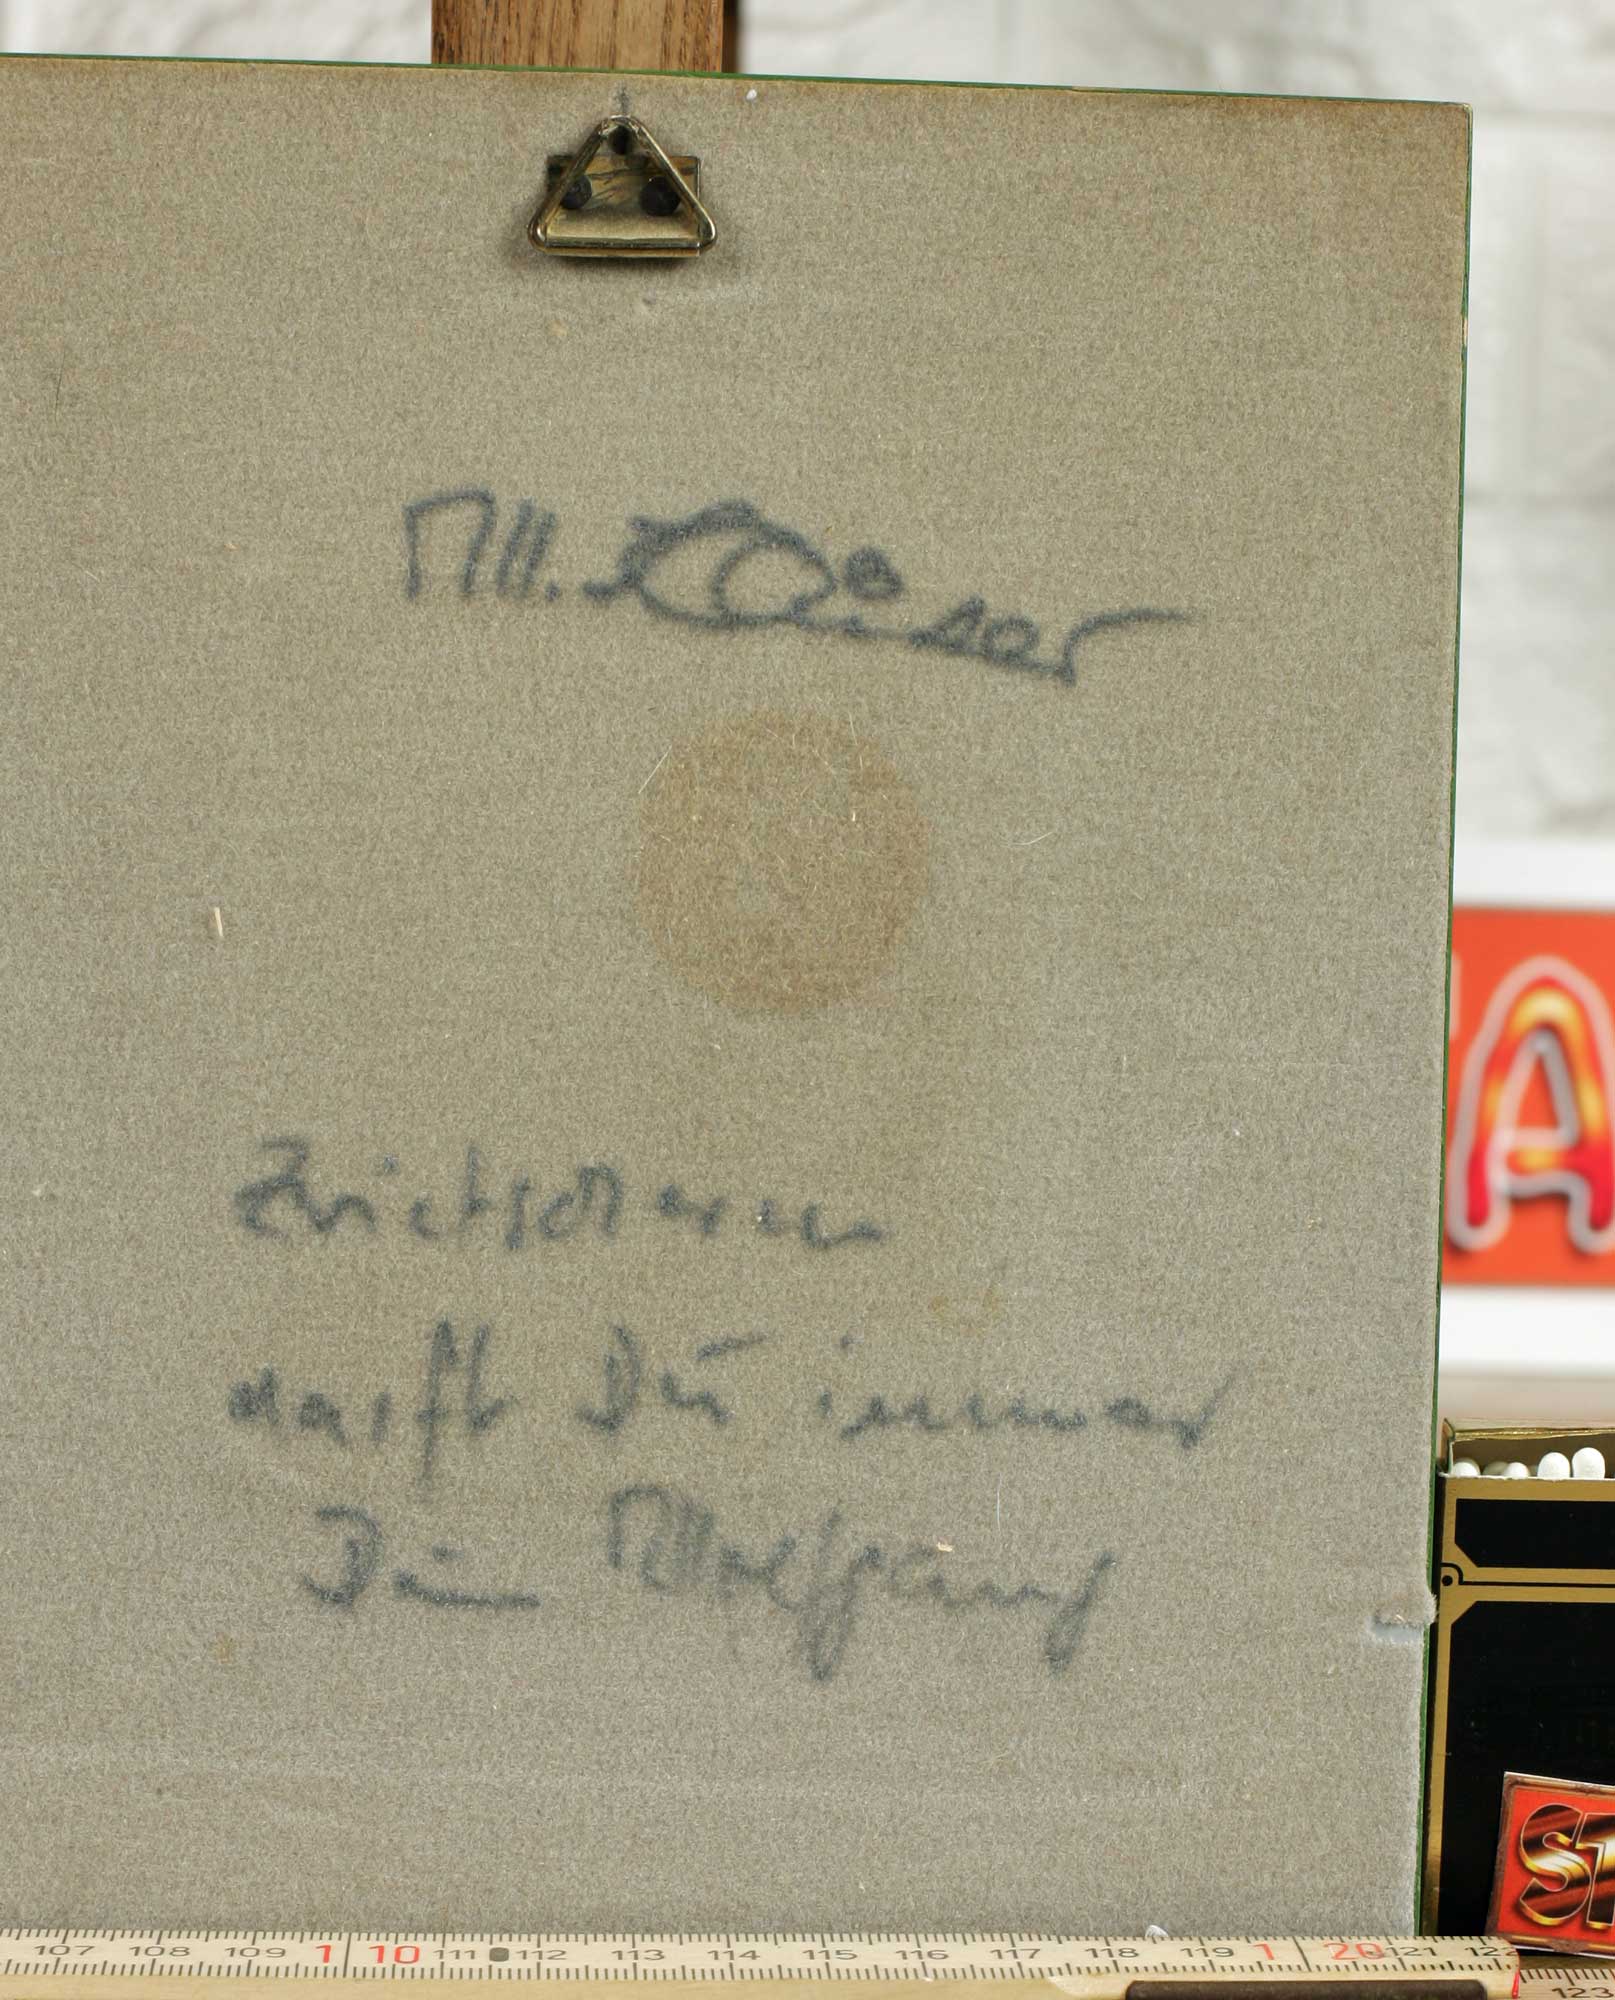 W.
darfst Du immer
Dein Wolfgang
A
107 108 109 1 10 111 112 113 114 115 116 117 118 119 1 20 121 122
123